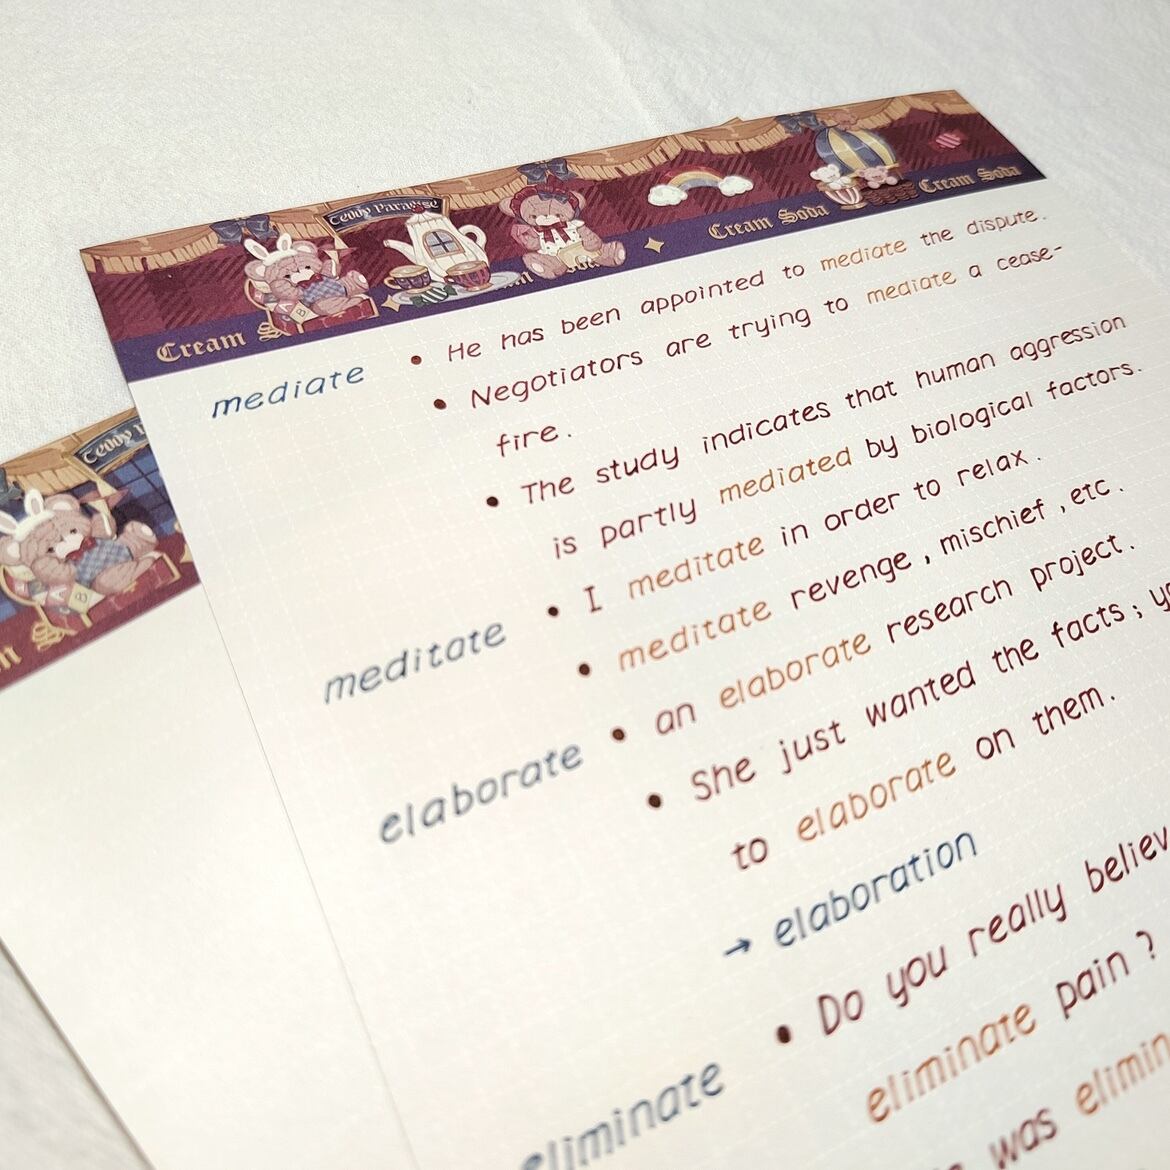 Teddy Paradise
Cream Soda
Cream Soda
Cream
mediate
• He has been appointed to mediate the dispute.
• Negotiators are trying to mediate a cease-
fire.
• The study indicates that human aggression
is partly mediated by biological factors.
meditate
• I meditate in order to relax.
• meditate revenge, mischief, etc.
elaborate
• an elaborate research project.
• She just wanted the facts;
to elaborate on them.
→ elaboration
eliminate
• Do you really
eliminate pain?
was
Teddy